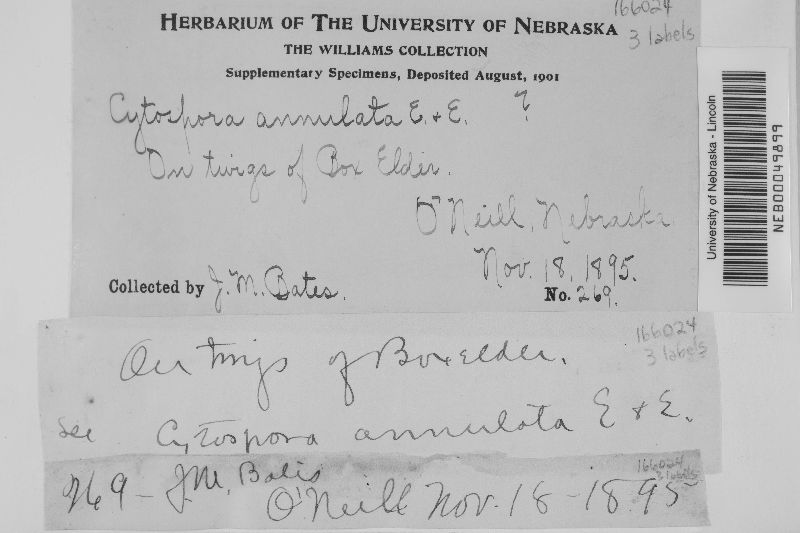 166024
3 labels
HERBARIUM OF THE UNIVERSITY OF NEBRASKA
THE WILLIAMS COLLECTION
Supplementary Specimens, Deposited August, 1901
Cytospora annulata E. & E. ?
On twigs of Box Elder.
O'Neill, Nebraska
Nov. 18, 1895.
Collected by J. M. Bates.
No. 269.
University of Nebraska - Lincoln
NEB00049899
166024
3 labels
On twigs of Box elder.
See Cytospora annulata E & E.
166024
3 labels
269 - J.M. Bates
O'Neill Nov. 18 - 1895